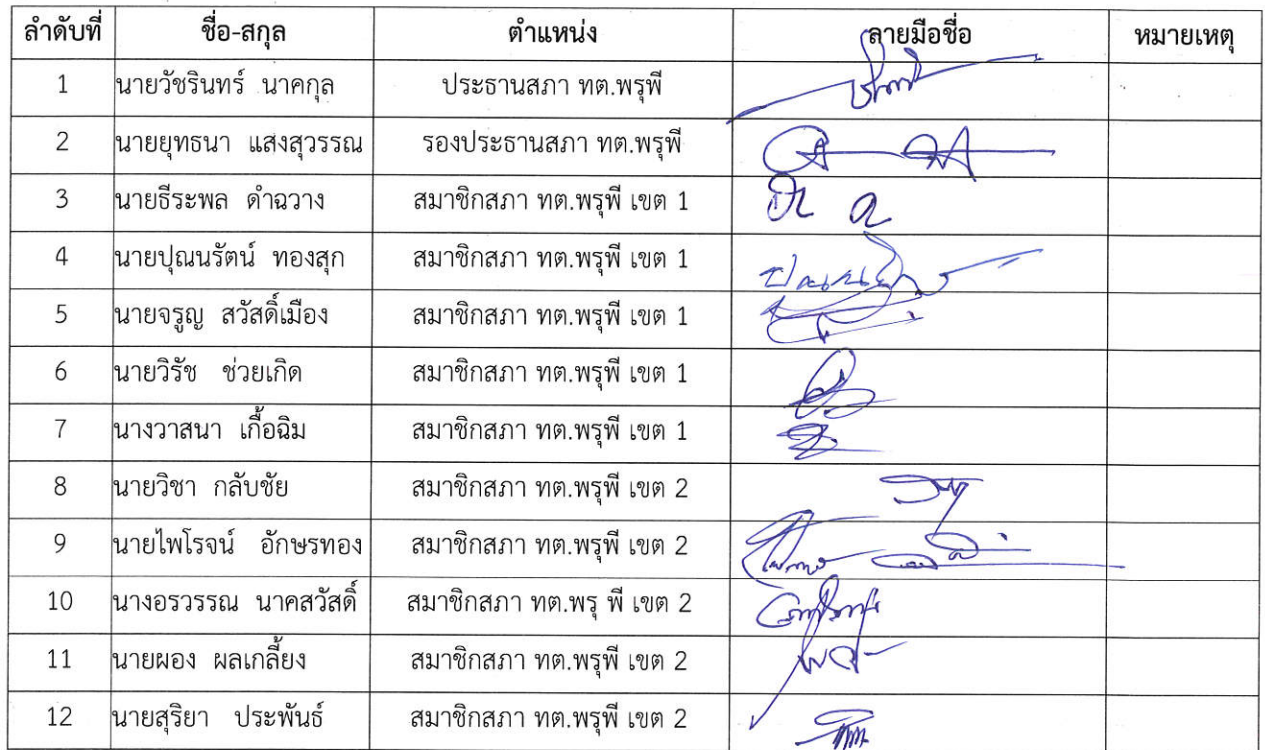 ลำดับที่ ชื่อ-สกุล ตำแหน่ง ลายมือชื่อ หมายเหตุ
1 นายวัชรินทร์ นาคกุล ประธานสภา ทต.พรุพี
2 นายยุทธนา แสงสุวรรณ รองประธานสภา ทต.พรุพี
3 นายธีระพล ดำฉวาง สมาชิกสภา ทต.พรุพี เขต 1
4 นายปุณนรัตน์ ทองสุก สมาชิกสภา ทต.พรุพี เขต 1
5 นายจรูญ สวัสดิ์เมือง สมาชิกสภา ทต.พรุพี เขต 1
6 นายวิรัช ช่วยเกิด สมาชิกสภา ทต.พรุพี เขต 1
7 นางวาสนา เกื้อฉิม สมาชิกสภา ทต.พรุพี เขต 1
8 นายวิชา กลับชัย สมาชิกสภา ทต.พรุพี เขต 2
9 นายไพโรจน์ อักษรทอง สมาชิกสภา ทต.พรุพี เขต 2
10 นางอรวรรณ นาคสวัสดิ์ สมาชิกสภา ทต.พรุ พี เขต 2
11 นายผอง ผลเกลี้ยง สมาชิกสภา ทต.พรุพี เขต 2
12 นายสุริยา ประพันธ์ สมาชิกสภา ทต.พรุพี เขต 2